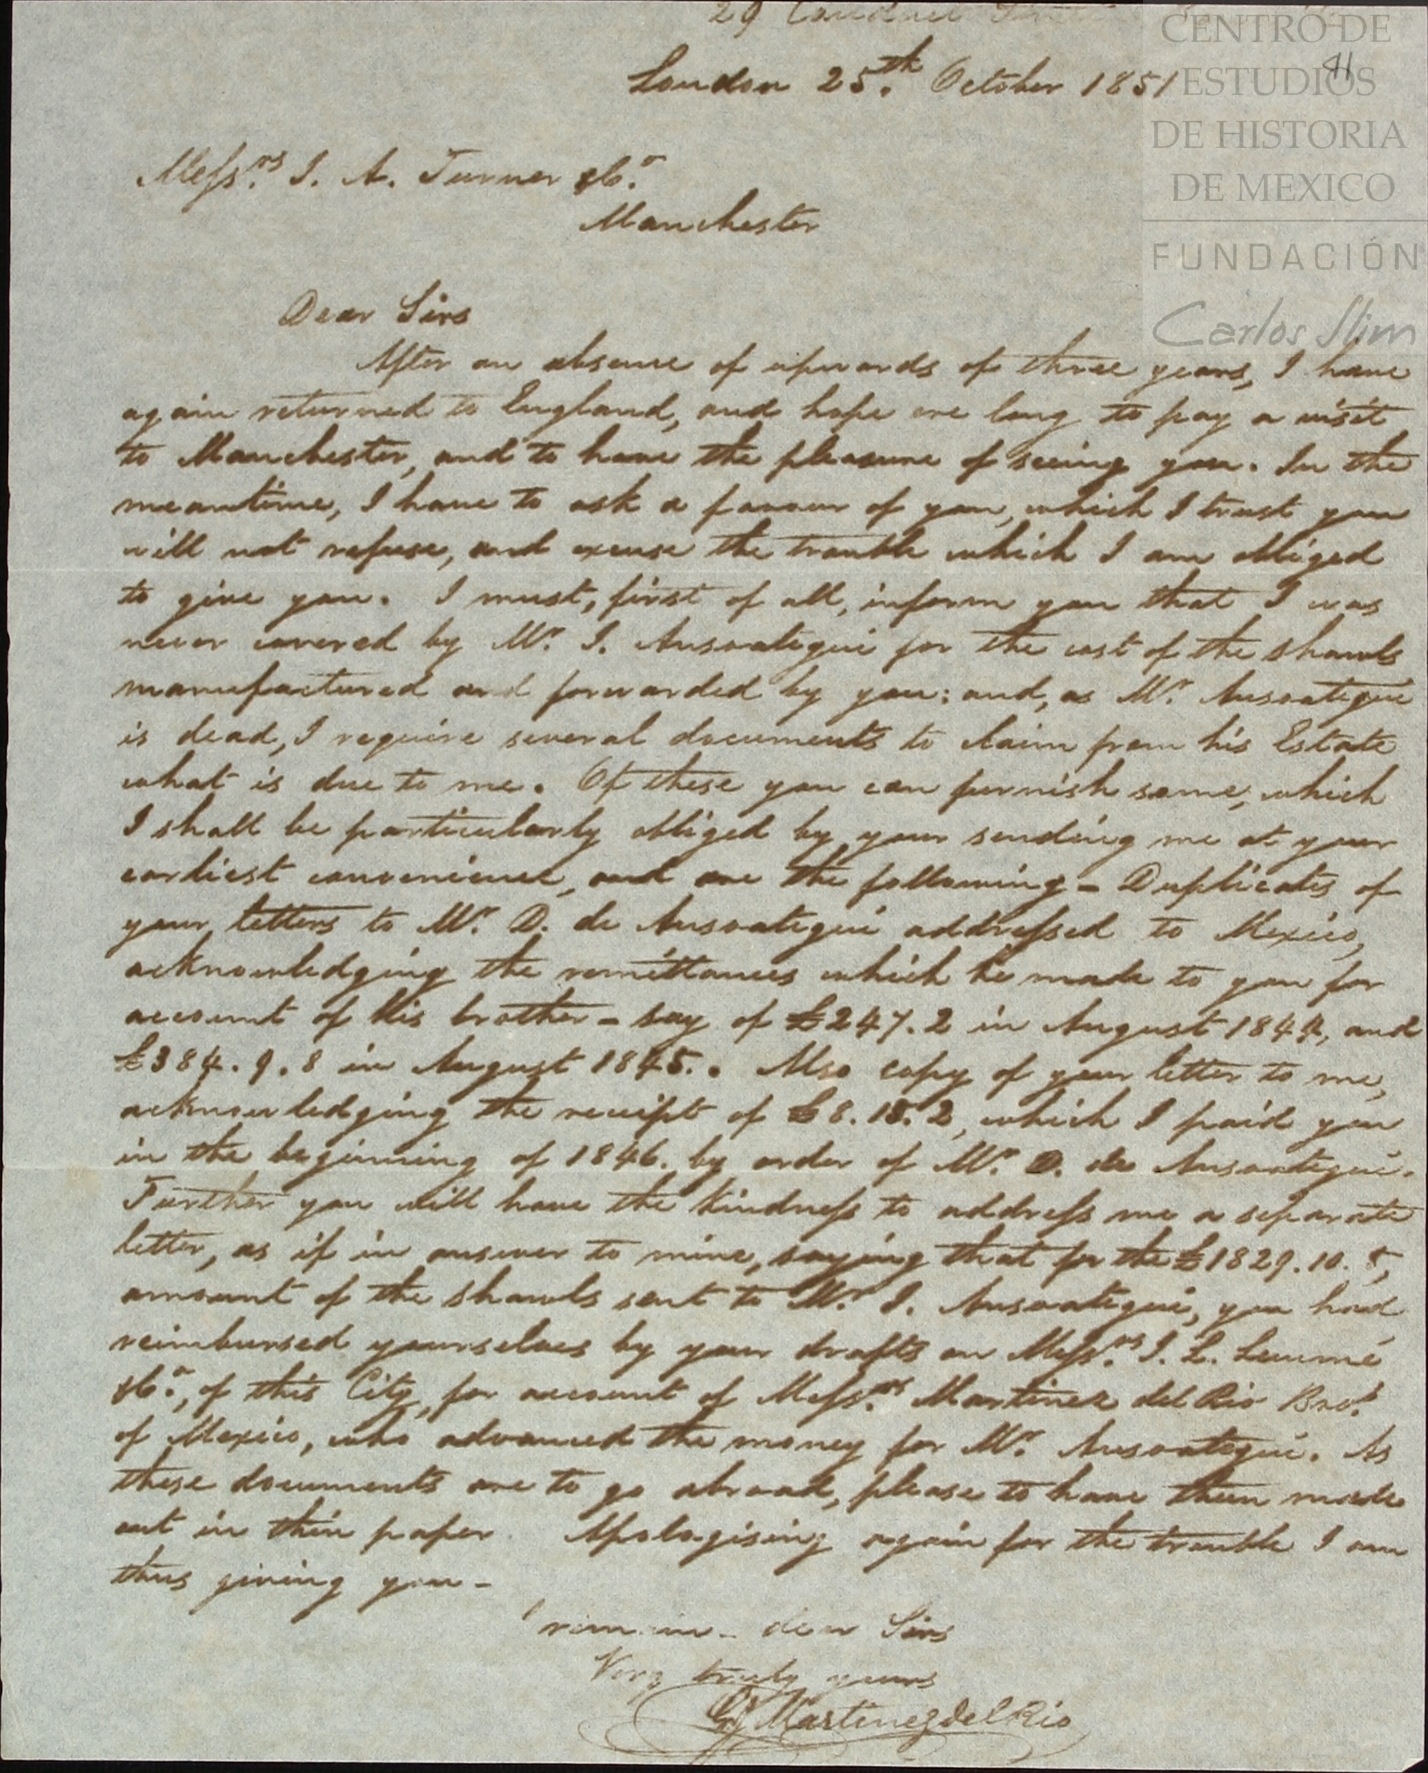 29 Conduit Street
London 25.th October 1851
41
Messrs. J. A. Turner & Co.
Manchester
Dear Sirs
After an absence of upwards of three years, I have
again returned to England, and hope ere long to pay a visit
to Manchester, and to have the pleasure of seeing you. In the
meantime, I have to ask a favour of you, which I trust you
will not refuse, and excuse the trouble which I am obliged
to give you. I must, first of all, inform you that I was
never covered by Mr. J. Ansoategui for the cost of the shawls
manufactured and forwarded by you: and, as Mr. Ansoategui
is dead, I require several documents to claim from his Estate
what is due to me. Of these you can furnish some, which
I shall be particularly obliged by your sending me at your
earliest convenience, and are the following - Duplicates of
your letters to Mr. D. de Ansoategui addressed to Mexico,
acknowledging the remittances which he made to you for
account of his brother - say of £247.2 in August 1844, and
£384.9.8 in August 1845.. Also copy of your letter to me,
acknowledging the receipt of £8.15.2, which I paid you
in the beginning of 1846. by order of Mr. D. de Ansoategui.
Further you will have the kindness to address me a separate
letter, as if in answer to mine, saying that for the £1829.10.5,
amount of the shawls sent to Mr. J. Ansoategui, you had
reimbursed yourselves by your drafts on Messrs. J. L. Lemmé
& Co., of this City, for account of Messrs. Martinez del Rio Bros.
of Mexico, who advanced the money for Mr. Ansoategui. As
these documents are to go abroad, please to have them made
out in thin paper. Apologising again for the trouble I am
thus giving you -
I remain - dear Sirs
Very truly yours
Martinez del Rio
CENTRO DE
ESTUDIOS
DE HISTORIA
DE MEXICO
FUNDACIÓN
Carlos Slim